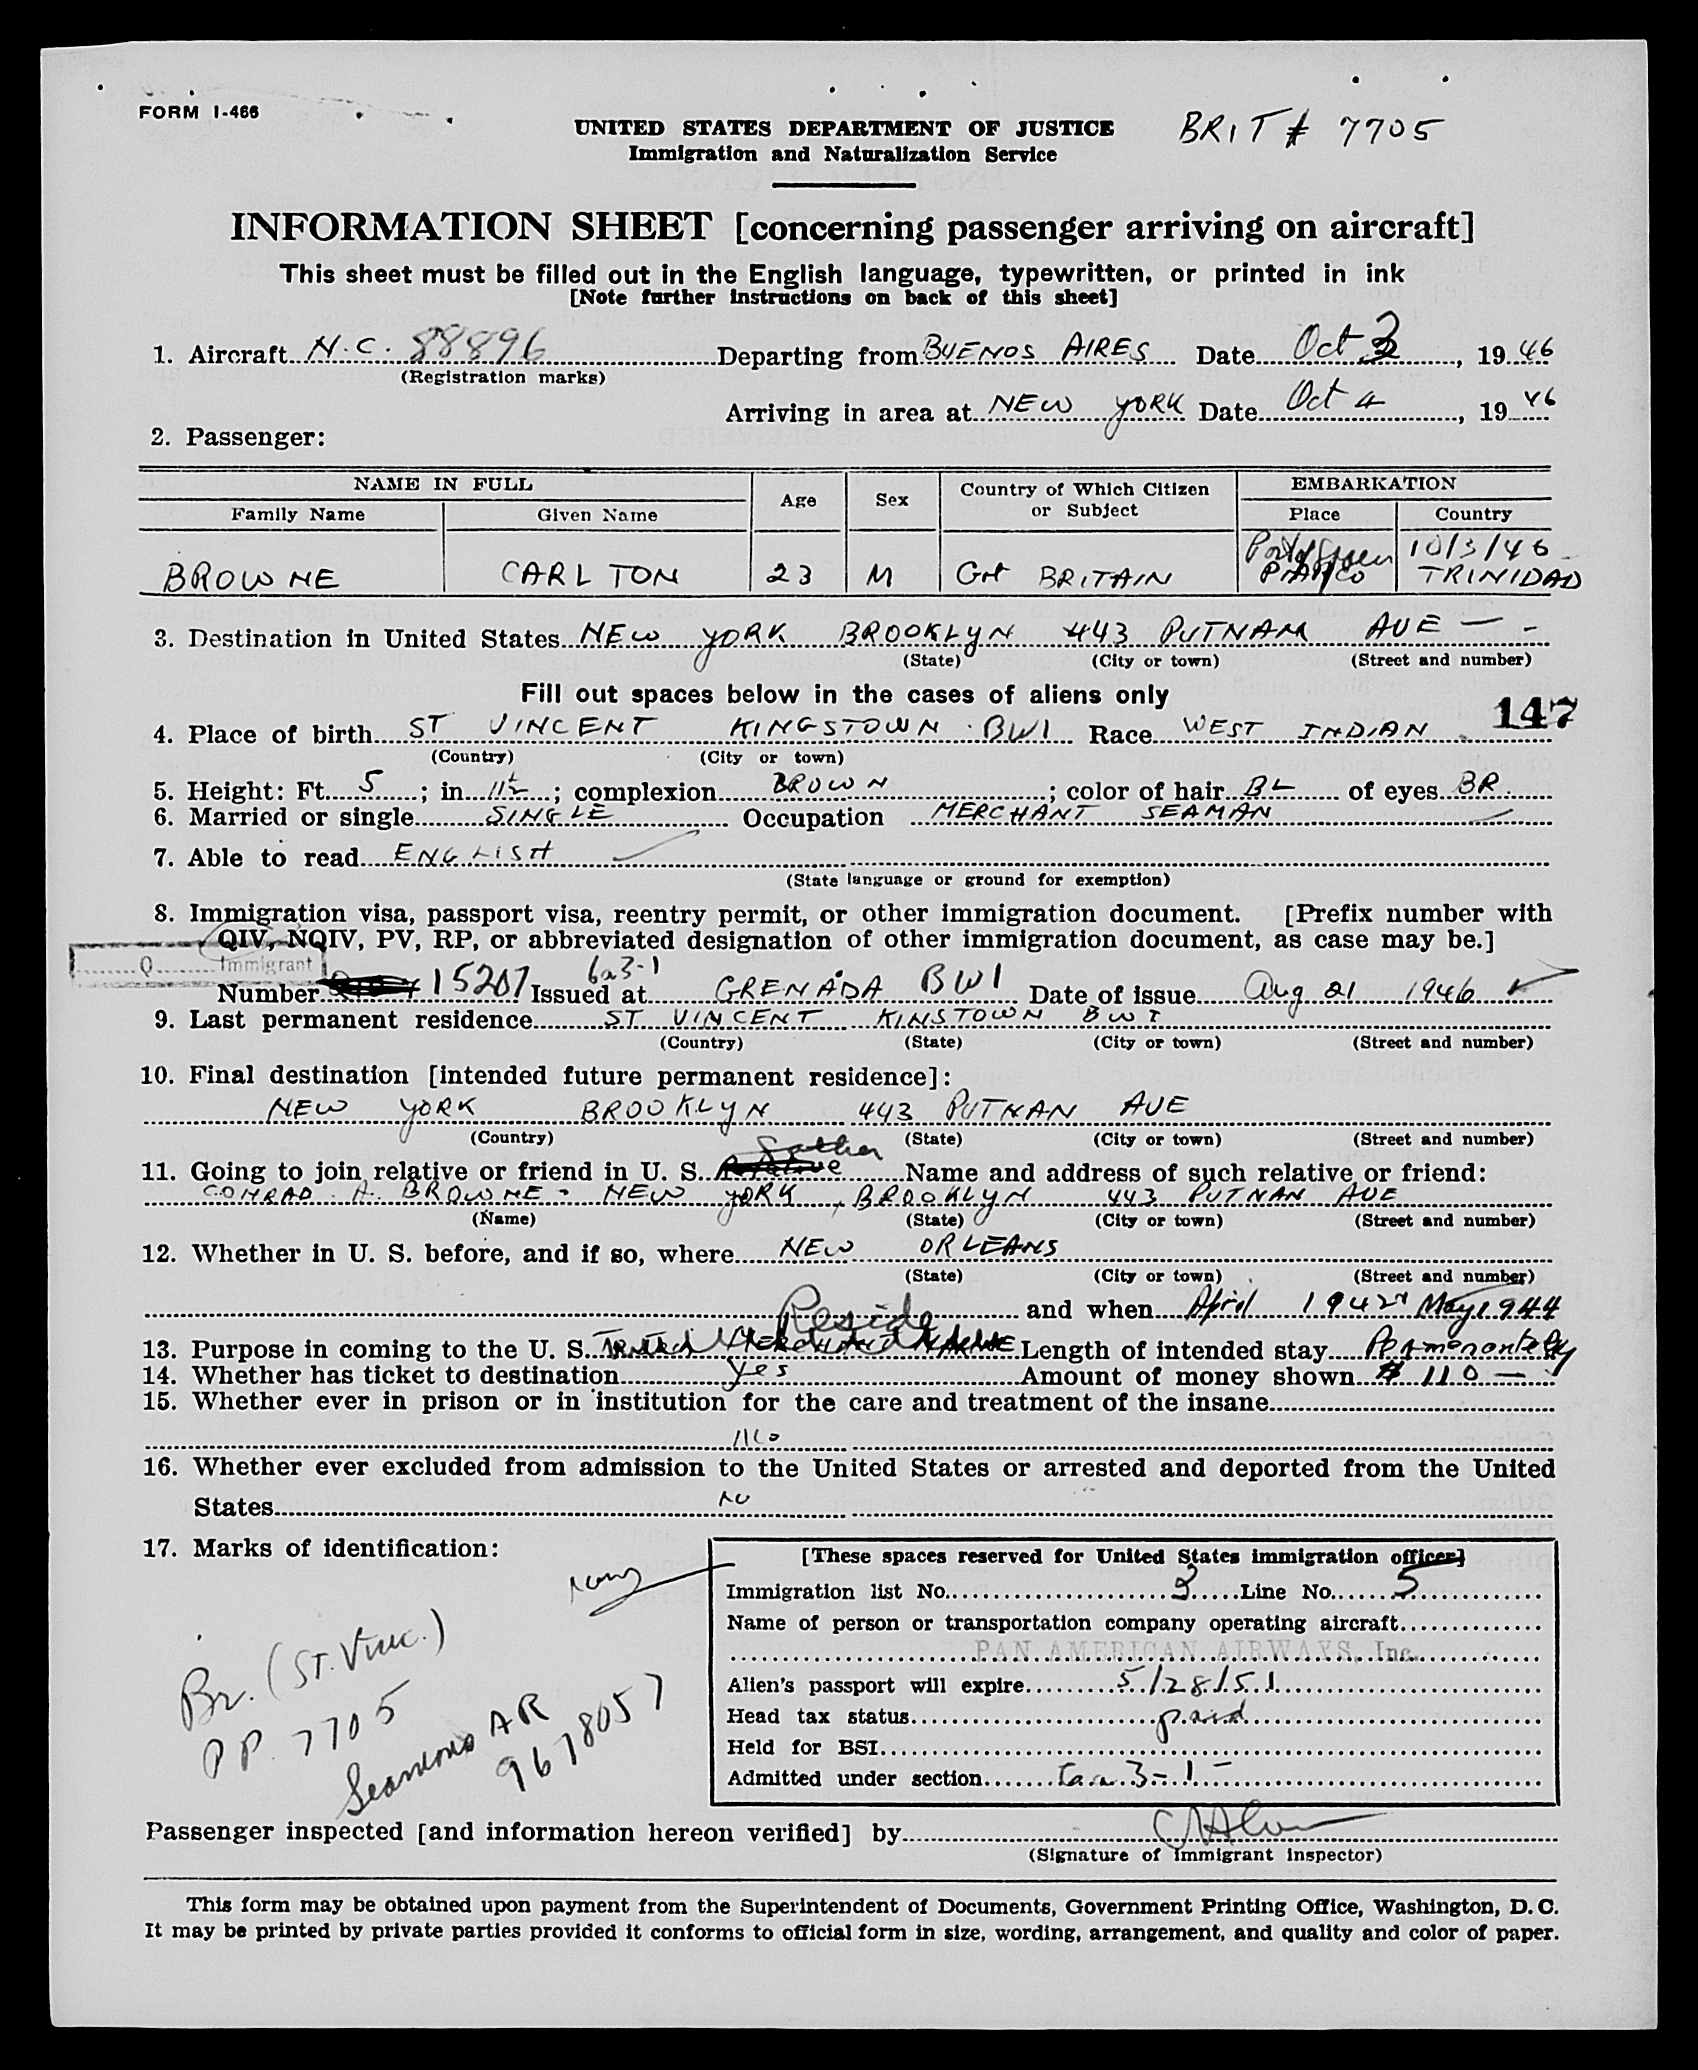 FORM I-466
UNITED STATES DEPARTMENT OF JUSTICE
BRIT # 7705
Immigration and Naturalization Service
INFORMATION SHEET [concerning passenger arriving on aircraft]
This sheet must be filled out in the English language, typewritten, or printed in ink
[Note further instructions on back of this sheet]
1. Aircraft N.C. 88896 Departing from BUENOS AIRES Date Oct 3, 19 46
(Registration marks)
Arriving in area at NEW YORK Date Oct 4, 19 46
2. Passenger:
NAME IN FULL Age Sex Country of Which Citizen or Subject EMBARKATION
Family Name Given Name Place Country
Port of Spain 10/3/46
BROWNE CARLTON 23 M Grt BRITAIN PIARCO TRINIDAD
3. Destination in United States NEW YORK BROOKLYN 443 PUTNAM AVE —
(State) (City or town) (Street and number)
Fill out spaces below in the cases of aliens only
147
4. Place of birth ST VINCENT KINGSTOWN . BWI Race WEST INDIAN
(Country) (City or town)
5. Height: Ft. 5; in. 11½; complexion BROWN; color of hair BL of eyes BR.
6. Married or single SINGLE Occupation MERCHANT SEAMAN
7. Able to read ENGLISH
(State language or ground for exemption)
8. Immigration visa, passport visa, reentry permit, or other immigration document. [Prefix number with
QIV, NQIV, PV, RP, or abbreviated designation of other immigration document, as case may be.]
Q Immigrant
Number 15207 6a3-1 Issued at GRENADA BWI Date of issue Aug 21 1946
9. Last permanent residence ST VINCENT KINSTOWN BWI
(Country) (State) (City or town) (Street and number)
10. Final destination [intended future permanent residence]:
NEW YORK BROOKLYN 443 PUTNAN AVE
(Country) (State) (City or town) (Street and number)
Father
11. Going to join relative or friend in U. S. Name and address of such relative or friend:
CONRAD A. BROWNE - NEW YORK, BROOKLYN 443 PUTNAN AVE
(Name) (State) (City or town) (Street and number)
12. Whether in U. S. before, and if so, where NEW ORLEANS
(State) (City or town) (Street and number)
and when April 1942 May 1944
Reside
13. Purpose in coming to the U. S. Length of intended stay Permanentely
14. Whether has ticket to destination Yes Amount of money shown $ 110 —
15. Whether ever in prison or in institution for the care and treatment of the insane
No
16. Whether ever excluded from admission to the United States or arrested and deported from the United
States No
17. Marks of identification:
[These spaces reserved for United States immigration officer]
Immigration list No. 3 Line No. 5
Name of person or transportation company operating aircraft
PAN AMERICAN AIRWAYS, Inc.
Alien's passport will expire 5/28/51
Head tax status paid
Held for BSI
Admitted under section 3-1
Br. (ST. Vinc.)
PP. 7705
Seamens AR
9678057
Passenger inspected [and information hereon verified] by
(Signature of Immigrant Inspector)
This form may be obtained upon payment from the Superintendent of Documents, Government Printing Office, Washington, D. C.
It may be printed by private parties provided it conforms to official form in size, wording, arrangement, and quality and color of paper.